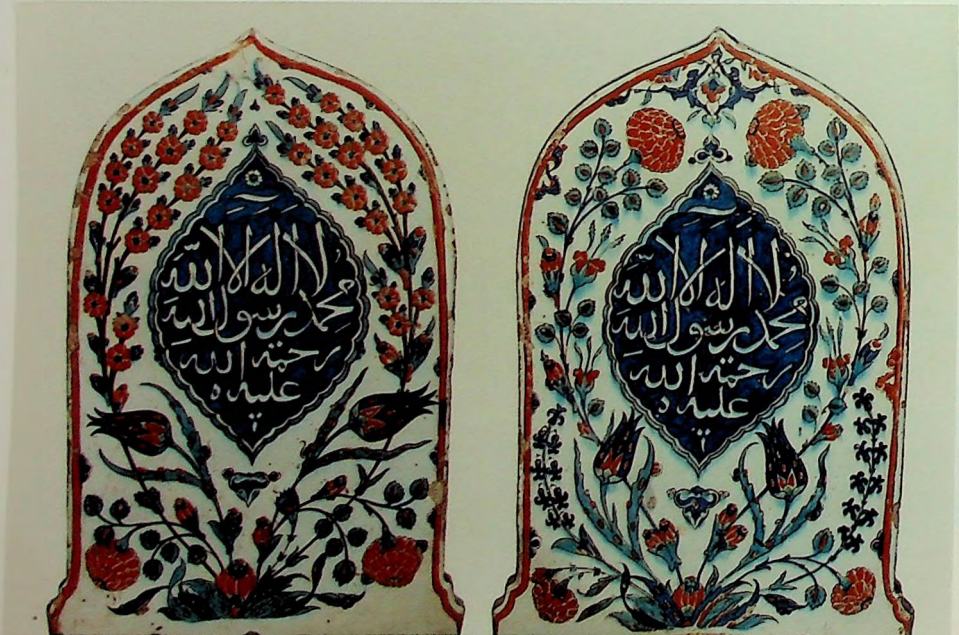 لا اله الا الله
محمد رسول الله
رحمة الله
عليه
لا اله الا الله
محمد رسول الله
رحمة الله
عليه